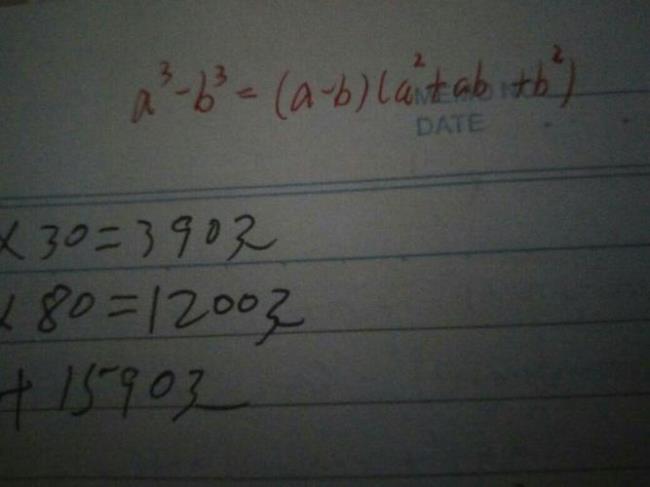 a³-b³=(a-b)(a²+ab+b²)
DATE
×30=390元
×80=1200元
+1590元